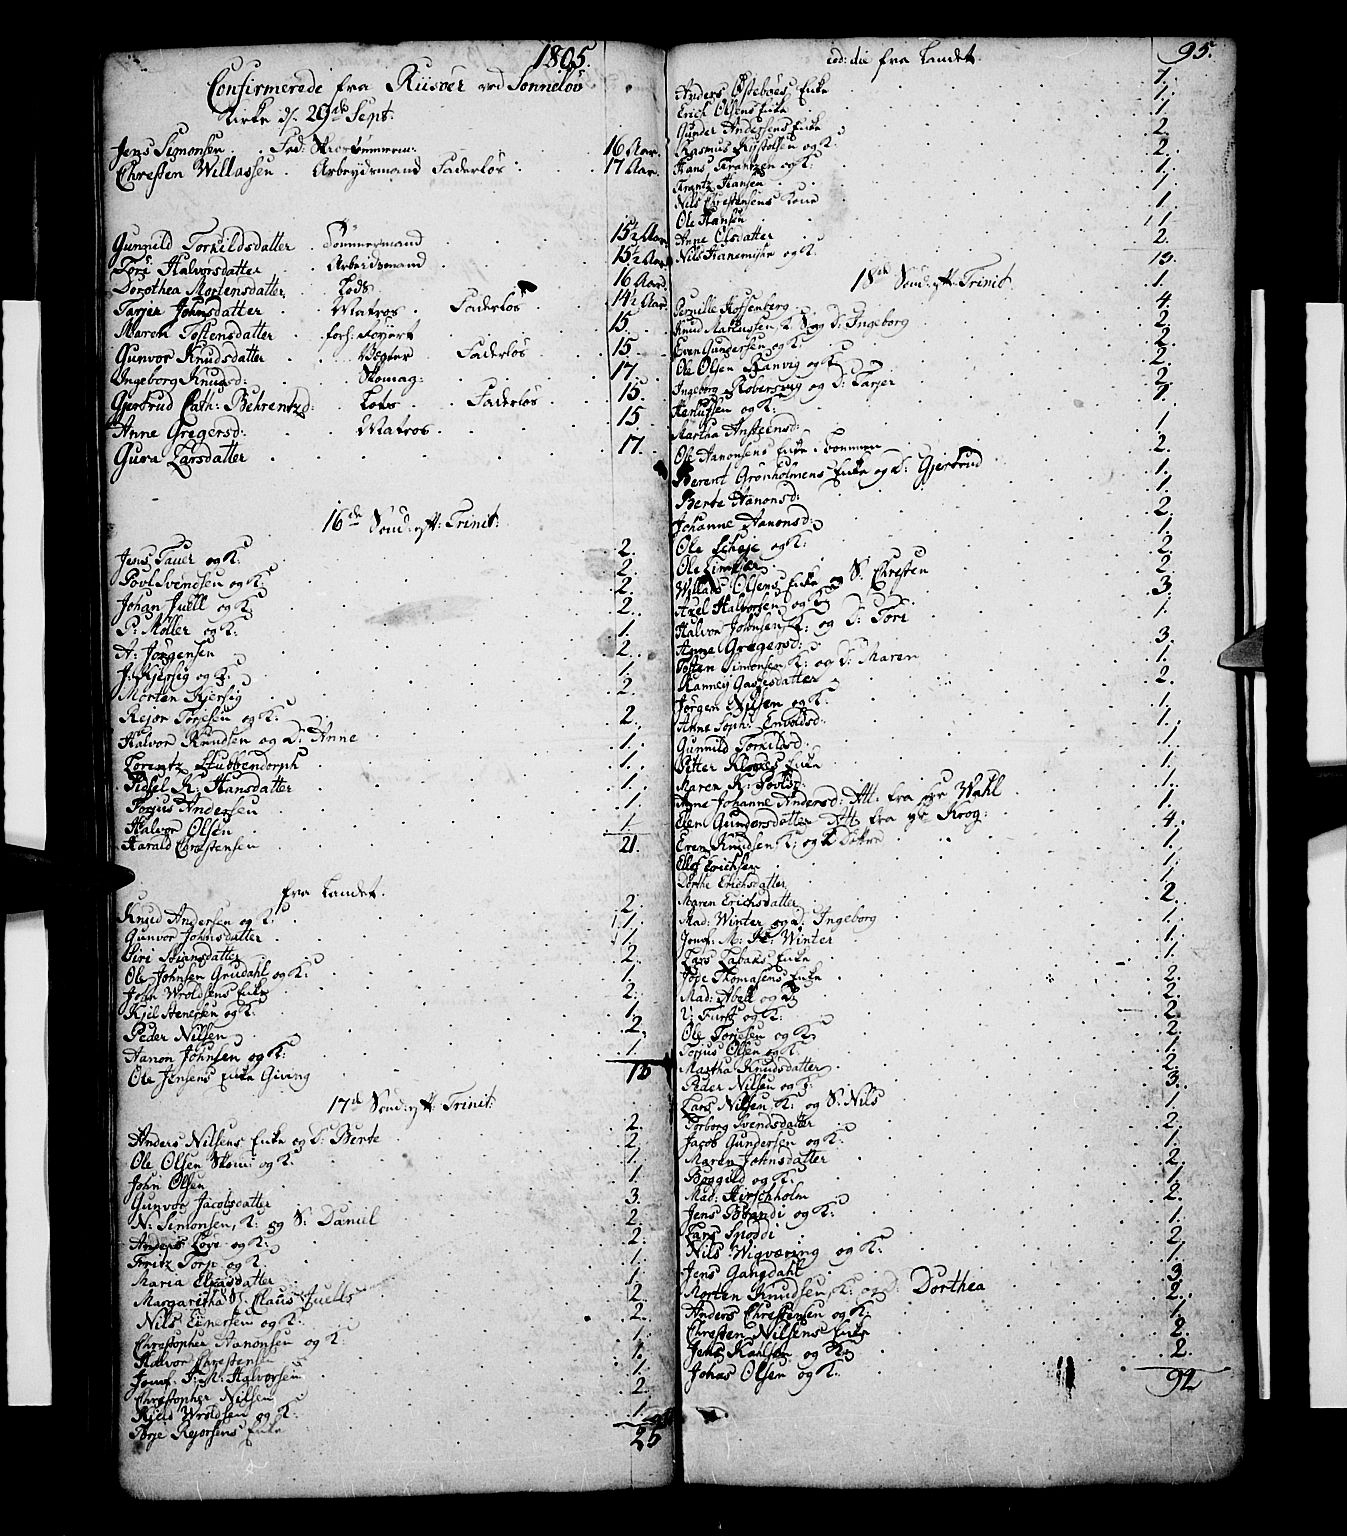 1805.
Confirmerede fra Riisöer ved Sönnelöv
Kirke d. 29de Sept:
Jens Simonsen . . . 16 Aar.
Christen Willassen . Arbeydsmand Faderlös . 17 Aar.
Gunnild Torkildsdatter . Tömmermand . 15½ Aar
Tori Halvorsdatter . Arbeidsmand . 15½ Aar
Dorothea Mortensdatter . Lods . 16 Aar
Tarjer Johnsdatter . Matros . Faderlös . 14½ Aar
Maren Tostensdatter . 15.
Gunvor Knudsdatter . Faderlös . 15.
Ingeborg Knudsd: . Skomag: . 17.
Gjertrud Cath: Behrentzd: . Lods . Faderlös . 15.
Anne Gregersd: . Matros . 15.
Gura Larsdatter . 17.
16de Sönd: eft: Trinit:
Jens Fauer og K: 2.
Povl Svendsen og K: 2.
Johan Juell og K: 2.
P: Möller og K: 2.
A: Jörgensen 1.
J: Kjersig og K: 2.
Morten Kjersig 1.
Rejer Torjesen og K: 2.
Halvor Knudsen og D: Anne 2.
Lorentz Stubbendorph 1.
Sidsel K: Hansdatter 1.
Torjus Andersen 1.
Halvor Olsen 1.
Harald Christensen 1.
21.
fra Landet.
Knud Andersen og K: 2.
Gunvor Johnsdatter 1.
Siri Stiansdatter 1.
Ole Johnsen Grudahl og K: 2.
John Wroldsens Enke 1.
Kjil Stenersen og K: 2.
Peder Nilsen 1.
Aanon Johnsen og K: 2.
Ole Jensens Enke Giving 1.
13
17de Sönd: eft: Trinit:
Anders Nilsens Enke og D: Berte 2.
Ole Olsen og K: 2.
John Olsen 1.
Gunvor Jacobsdatter 1.
N: Simonsen, K: og S: Daniel 3.
Anders Love og K: 2.
Fritz Torp og K: 2.
Maria Eliasdatter 1.
Margaritha Claus Juells 1.
Nils Einersen og K: 2.
Christopher Aanonsen og K: 2.
Halvor Christensen 1.
Jomf: Halvorsen 1.
Christopher Nilsen 1.
Niels Wroldsen og K: 2.
Terje Rejersens Enke 1.
25
eod: die fra Landet.
95.
Anders Östeböes Enke 1.
Erich Olsens Enke 1.
Gunder Andersens Enke 1
Rasmus Kistolsen og K: 2.
Hans Frantzen og K: 2.
Frantz Hansen 1.
Nils Christensens Kone 1
Ole Hansen 1.
Anne Olsdatter 1.
Nils Hanemyhr og K: 2.
13.
18de Sönd: eft: Trinit
Pernille Rossenberg 1.
Knud Markussen K: S: og D: Ingeborg 4.
Even Gundersen og K: 2.
Ole Olsen Ranvig og K: 2.
Ingeborg Robersvig og D: Tarjer 2.
og K: 2.
Martha Ansteensd: 1.
Ole Aanonsens Enke 1
Berent Grönholmens Enke og D: Gjertrud 2.
Berte Aanonsd: 1.
Johanne Aanonsd: 1.
Ole Scheje og K: 2.
Ole 1.
Willads Olsens Enke og S: Christen 2.
Axel Halvorsen og K: 2.
Halvor Johnsen K: og D: Tori 3.
Anne Gregersd: 1.
Tosten Simonsen K: og D: Maren 3.
Ranneij Gasjesdatter 1.
Jörgen Nilsen og K: 2.
Anne Soph: Envoldsd: 1.
Gunnild Torkildsd: 1.
Petter Klookes Enke 1.
Maren K: Povlsd: 1.
Anne Johanne Andersd: Att: fra Hr: Wahl 1.
Elen Gundersdatter Att fra Hr Krog: 1.
Eren Knudsen K: og 2 Döttre 4.
Elles Erichsen 1
Dorthe Erichsdatter 1.
Maren Erichsdatter 1.
Mad: Winter og D: Ingeborg 2.
Jomf: M: K: Winter 1.
Lars Tabaks Enke 1.
Jöge Thomasens Enke 1.
Mad: Abell og D: 2.
V: Furst og K: 2.
Ole Torjesen og K: 2.
Torjus Olsen og K: 2.
Martha Knudsdatter 1.
Peder Nilsen og K: 2.
Lars Nilsen K: og S: Nils 3.
Torborg Svendsdatter 1.
Jacob Gundersen og K: 2.
Maren Johnsdatter 1.
Böggild og K: 2.
Mad: Hirschholm 1
Jens Brandi og K: 2.
Lars Spoddi 1.
Nils Wigværing og K: 2.
Jens Gangdahl 1.
Morten Knudsen, K: og D: Dorthea 3.
Anders Christensen og K: 2.
Christen Nilsens Enke 1.
Jens Karlsen og K: 2.
Johas Olsen og K: 2.
92